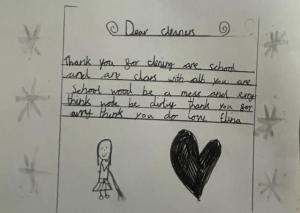 Dear cleaners
Thank you for clening are school
and are clars with alt you are
School wood be a mess and evry
think wode be dirty thank you for
evry think you do love Elina